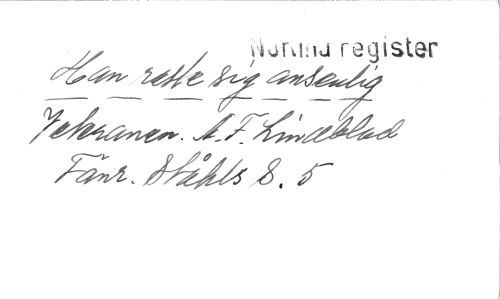 Nordlind register
Han reste sig ansenlig
Veteranen. A. F. Lindblad
Fänr. Ståhls S. 5